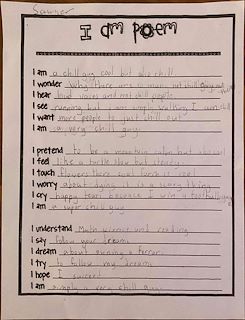 Sawyer
I Am Poem
I am a chill guy cool but also chill
I wonder why there are so many not chill guys out
I hear loud noises and not chill people
I see running but I am simply walking I am chill
I want more people to just chill out
I am a very chill guy
I pretend to be a mountain
I feel like a turtle slow but steady
I touch flowers there cool
I worry about dying it is a scary thing
I cry happy tears because I win a football game
I am a super chill guy
I understand Math science and reading
I say follow your dreams
I dream about owning a
I try to follow my dreams
I hope I succeed
I am simply a very chill guy